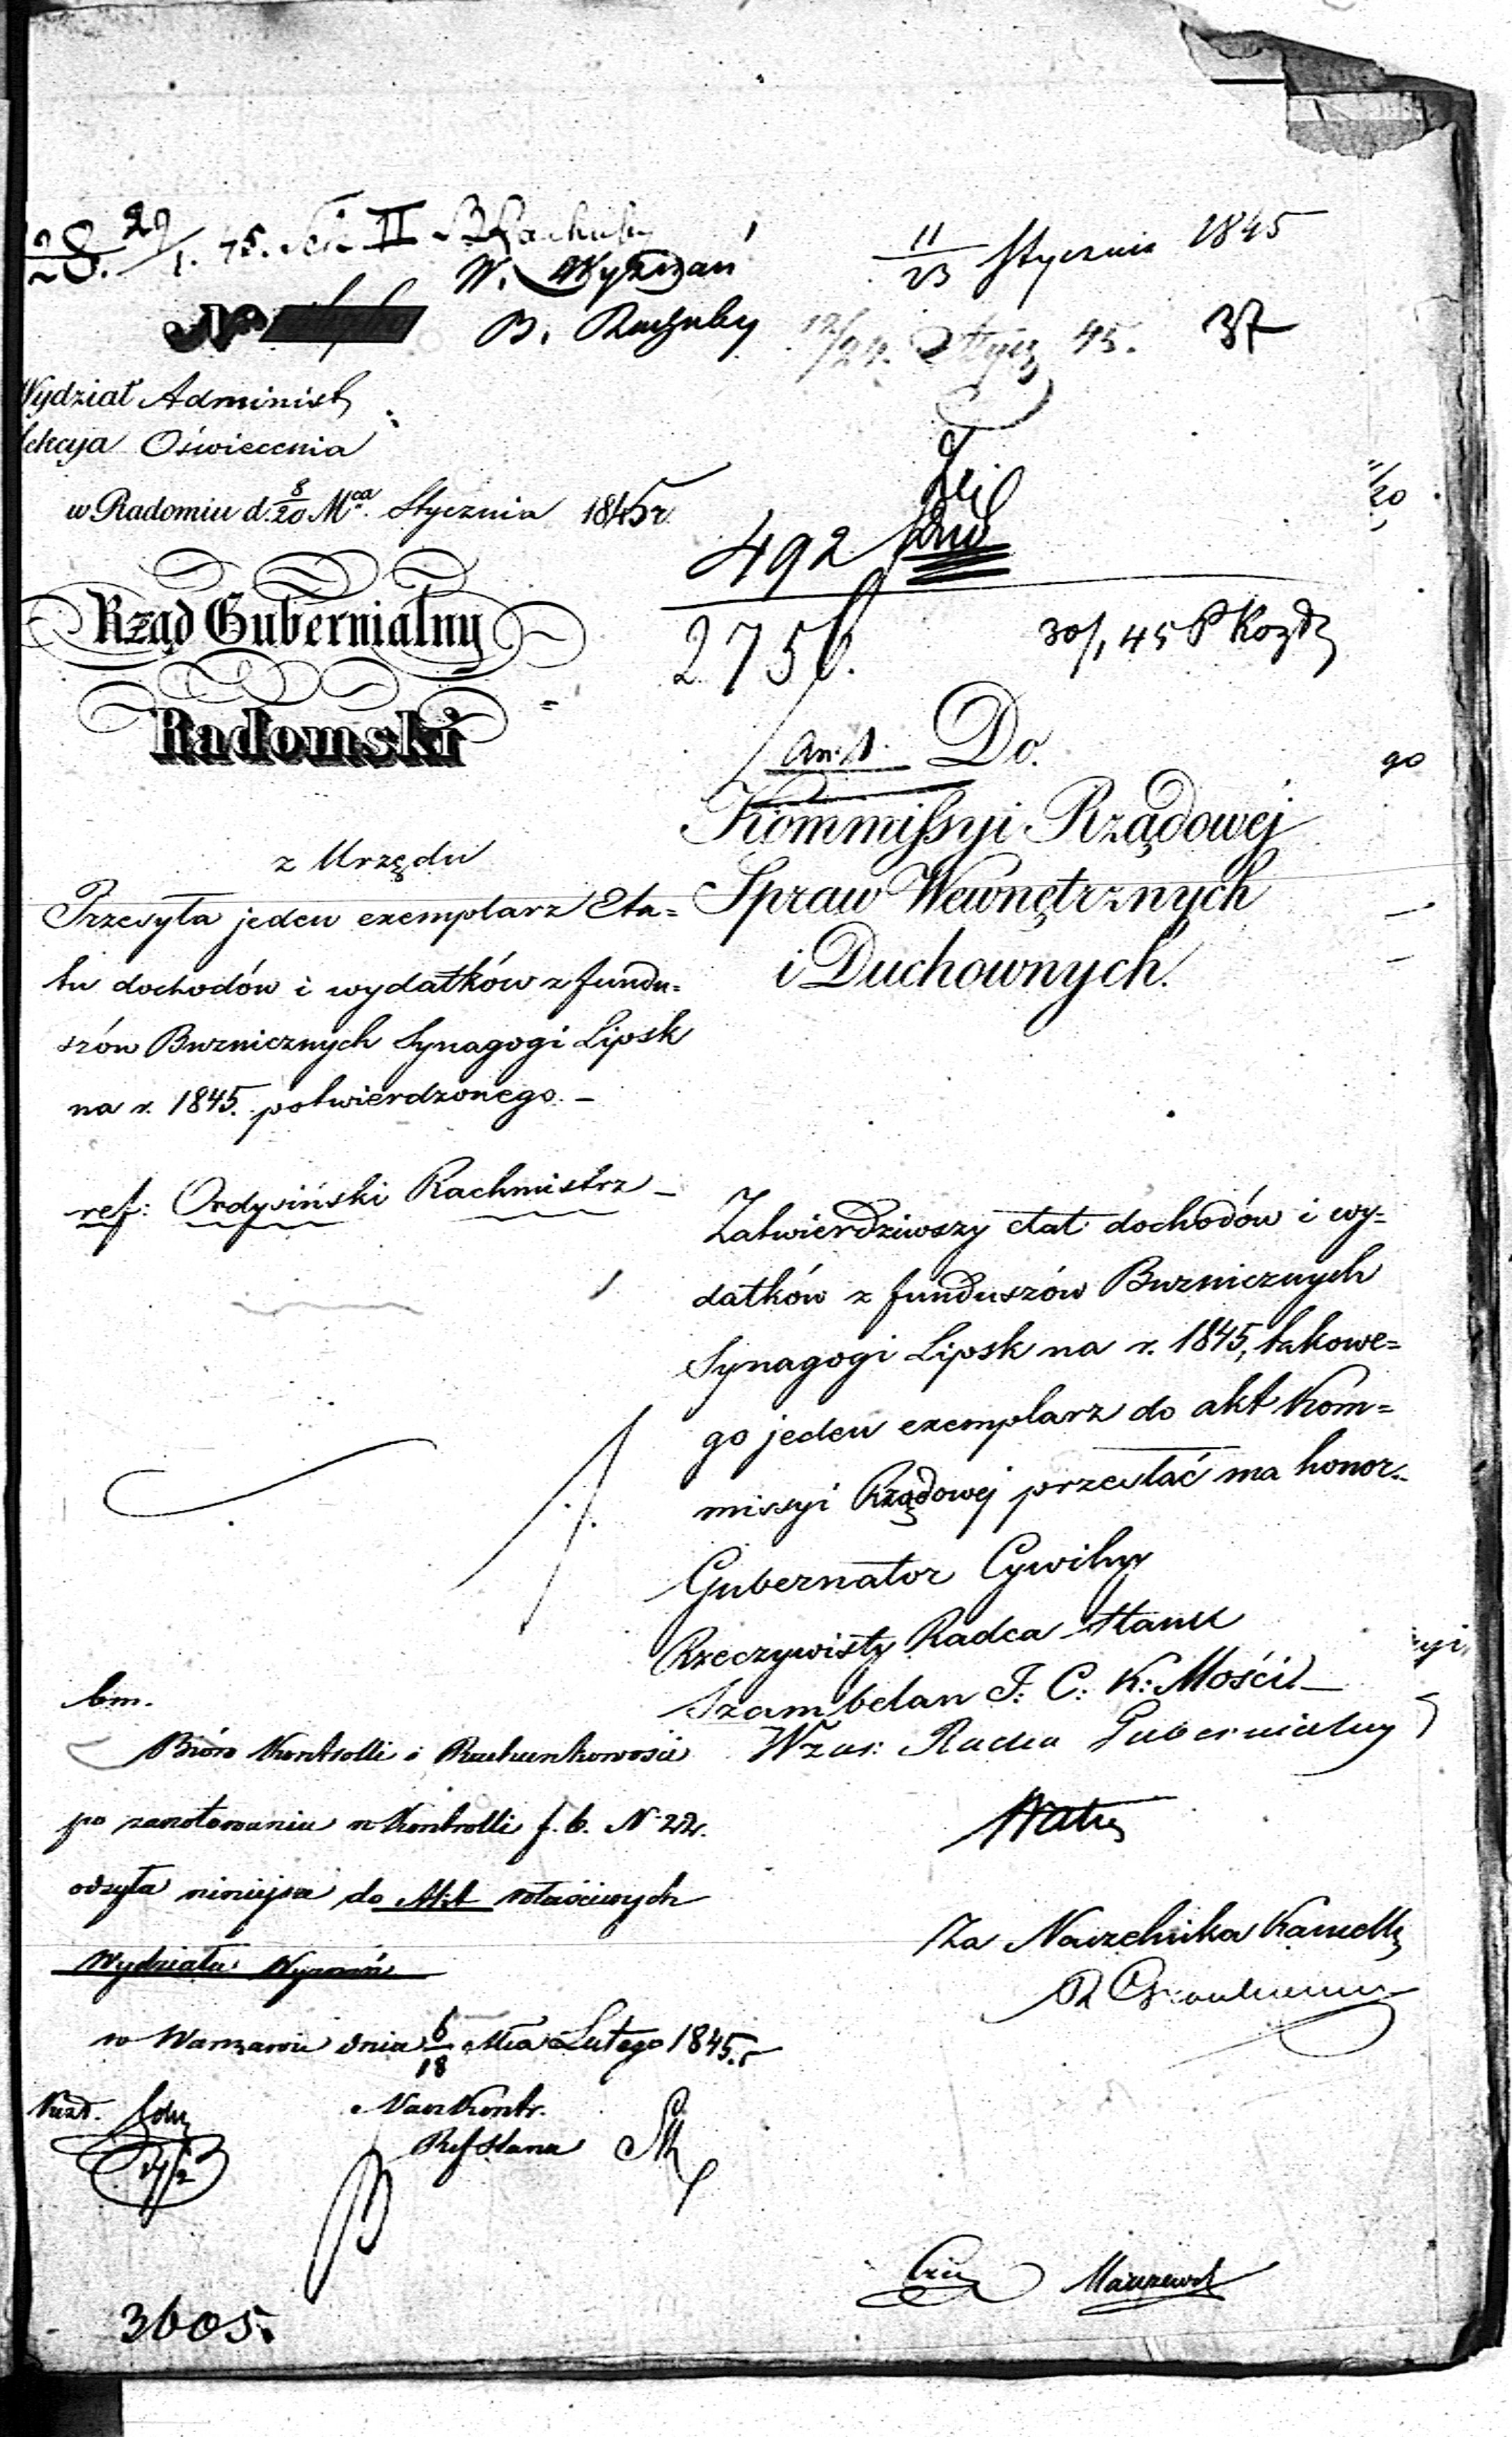 28. 29/1. 45. II
W. Wyznań
B. Rachuby
11/23 Stycznia 1845
12/24. Stycz 45. 37
No
Wydział Administ
Sekcyja Oświecenia
w Radomiu d. 8/20 Mca. Stycznia 1845 r.
Rząd Gubernialny
Radomski
492
2756.
30/1 45 P Kozł
An: 1.
Do.
Kommissyi Rządowéj
Spraw Wewnętrznych
i Duchownych.
z Urzędu
Przesyła jeden exemplarz Eta=
tu dochodów i wydatków z fundu=
szów Bużnicznych Synagogi Lipsk
na r. 1845. potwierdzonego. –
ref: Ordysiński Rachmistrz –
Zatwierdziwszy etat dochodów i wy=
datków z funduszów Bużnicznych
Synagogi Lipsk na r. 1845, takowe=
go jeden exemplarz do akt Kom=
missyi Rządowej przesłać ma honor.
Gubernator Cywilny
Rzeczywisty Radca Stanu
Szambelan J: C: K: Mości –
W zas: Radca Gubernialny
Za Naczelnika Kancell
bm.
Bióro Kontrolli i Rachunkowości
po zanotowaniu w Kontrolli f. 6. N
odsyła niniejsze do Akt właściwych
Wydziału Wyznań
w Warszawie dnia 6/18 Mca Lutego 1845. r
Nacz Kontr.
Ref Stanu
3605.